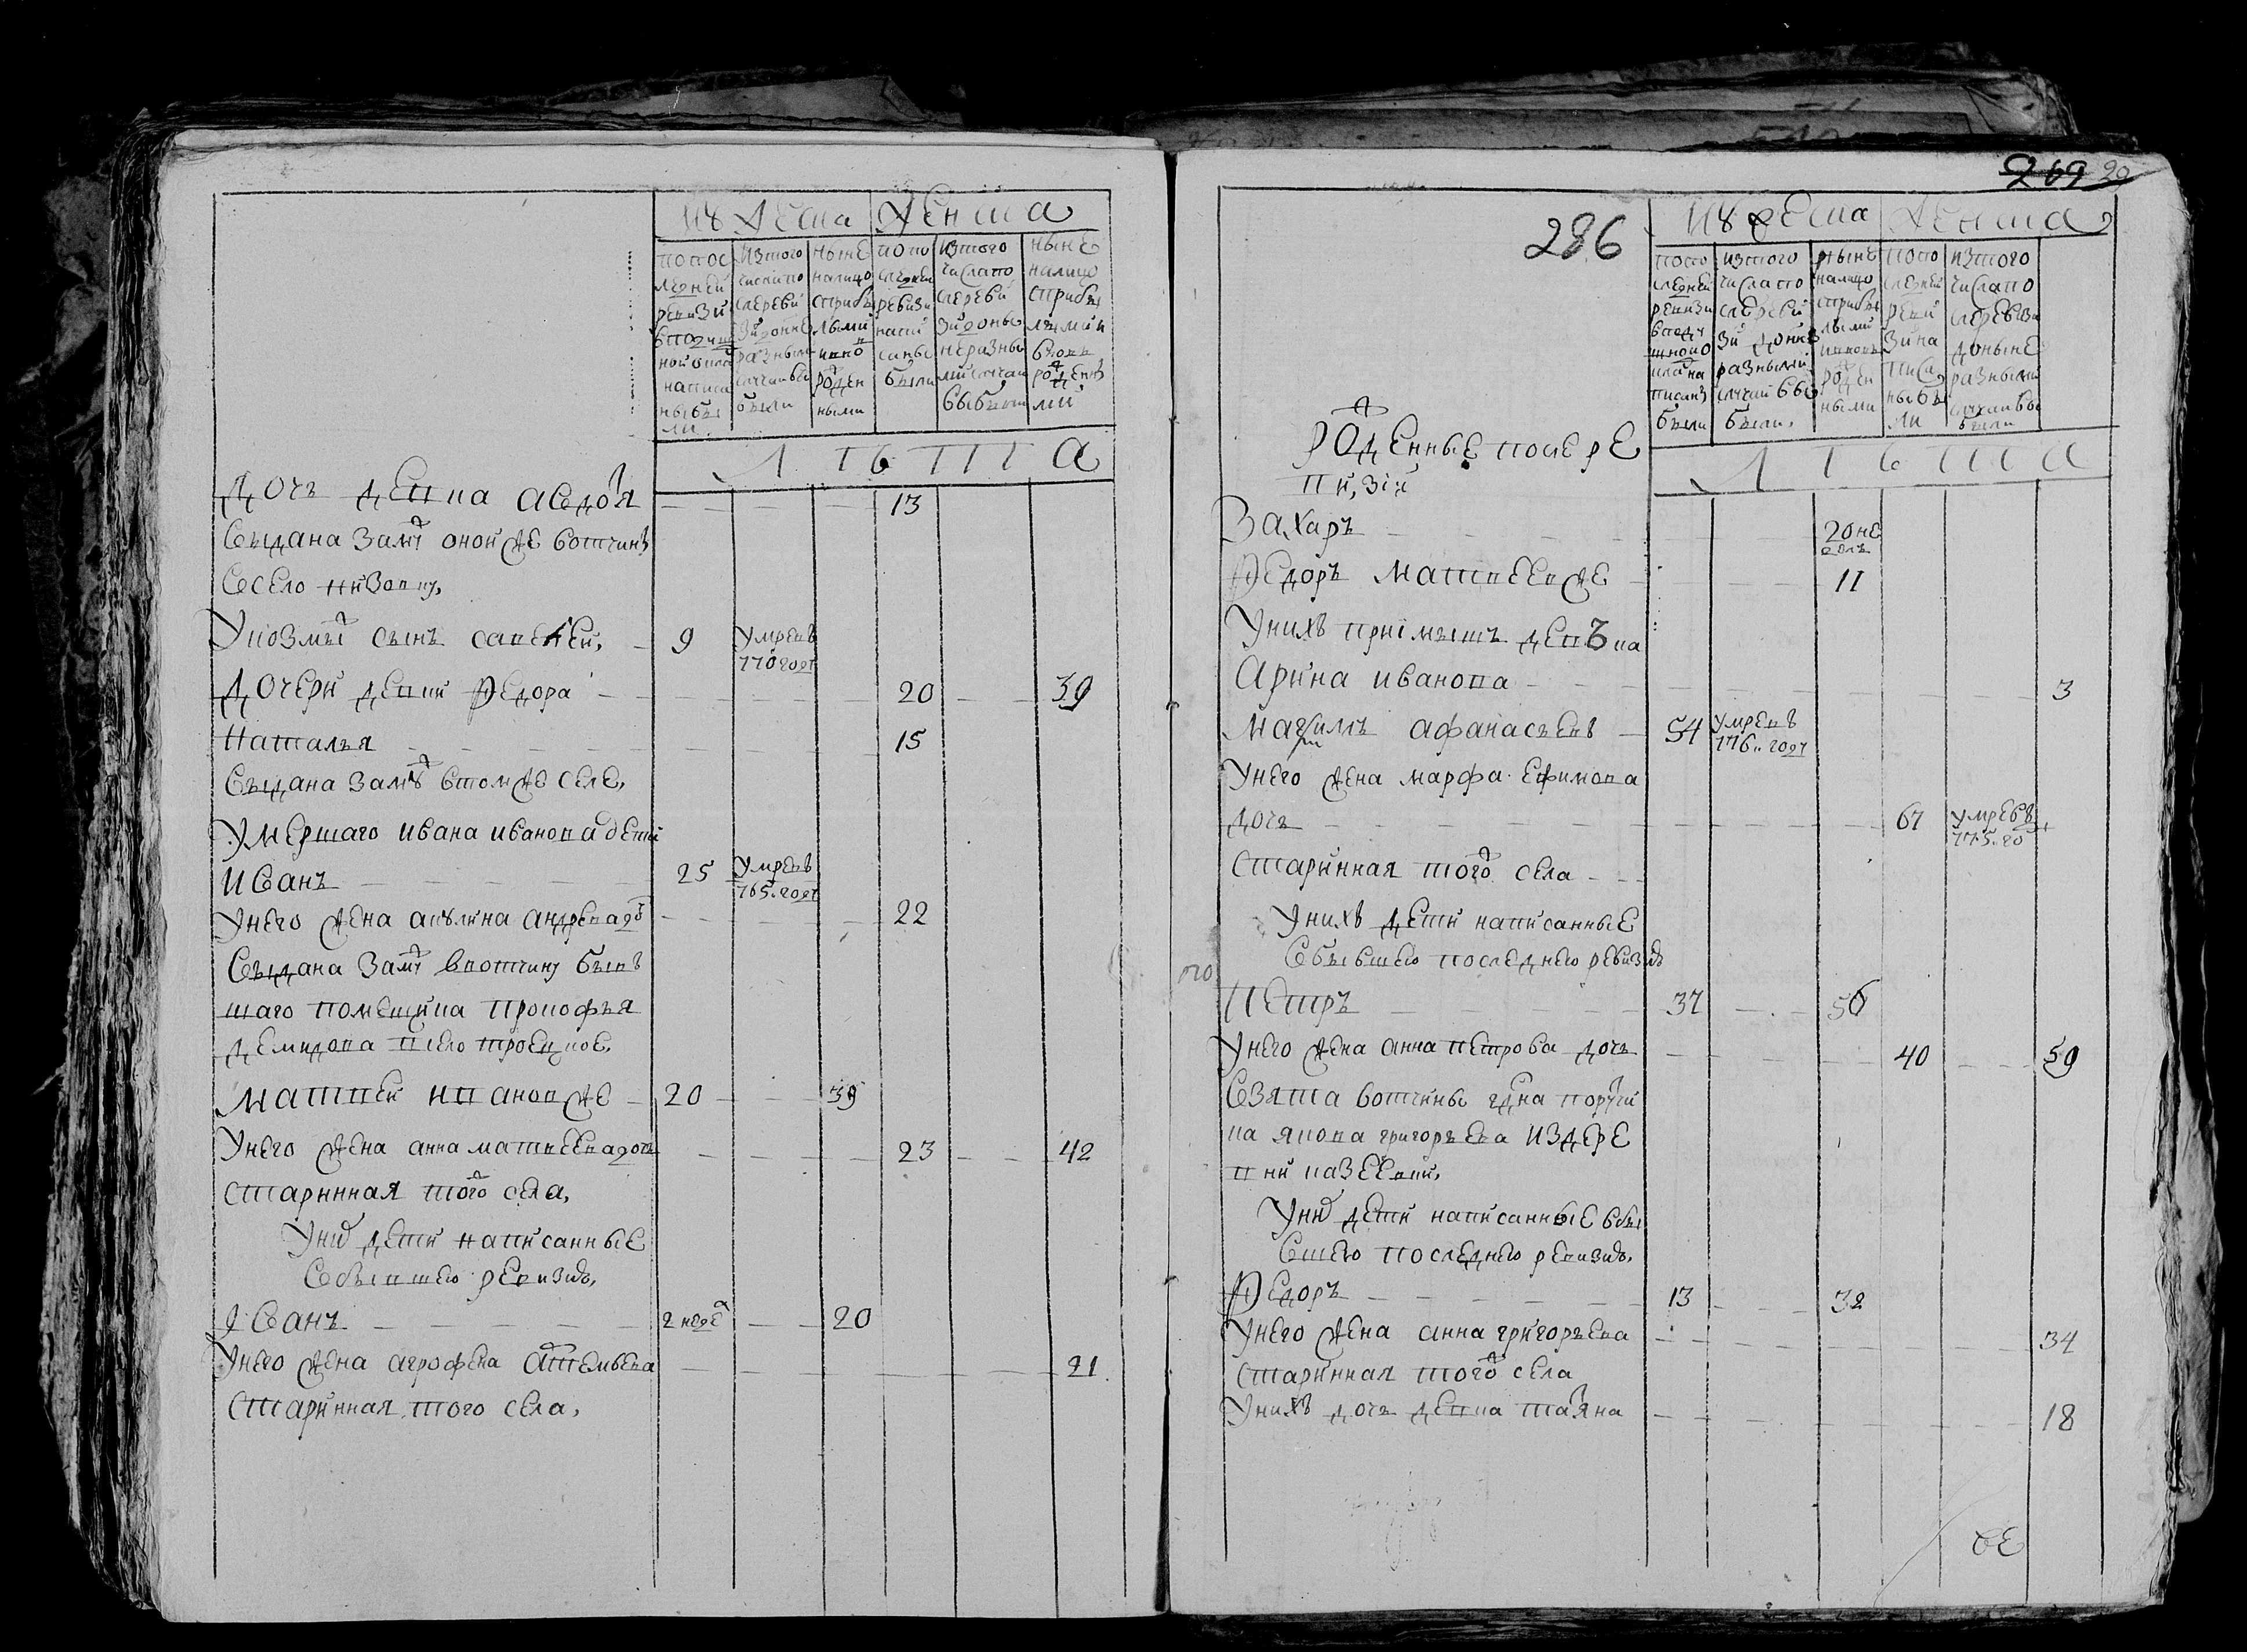 мужеска
женска
попос
ледней
ревизи
вподуш
ной окла
написа
ны бы
ли
изтого
числапо
слереви
зи доне
разными
случаи вы
были
ныне
налицо
сприбы
лыми
ивно
рожден
ными
попо
следней
ревизи
напи
саны
были
изтого
числапо
слереви
зи доны
не разны
ми случаи
выбыли
ныне
налицо
сприбы
лыми и
вновь
рожденны
ми
лѣта
дочь девка авдотя — 13
выдана замуж оной же вотчины
всело низовку,
укозмы сынъ савелей, — 9 умревъ
770 году
дочери девки федора — 20 — 39
наталья — 15
выдана замуж втомже селе,
умершаго ивана иванова дети
иванъ — 25 умревъ
765 году
унего жена акулина андрева до — 22
выдана замуж ввотчину быв
шаго помещика прокофья
демидова всело троецкое,
матвей иванов же — 20 — 39
унего жена анна матвеева дочь — 23 — 42
старинная того ж села,
уних дети написанные
вбывшею ревизию,
иванъ — 2 неде — 20
унего жена агрофена артемьева — 21
старинная того села,
269 29
286
мужеска
женска
попо
следней
ревизи
вподу
шной о
кла на
писаны
были
изтого
числапо
слереви
зи доны
разными
случаи вы
были,
ныне
налицо
сприбы
лыми
ивновь
рожден
ными
попо
следней
реви
зи на
писа
ны бы
ли
изтого
числапо
слеревизи
доныне
разными
случаи вы
были
лѣта
рожденные после ре
визій
захаръ — 20 не
дель
федоръ матвеев же — 11
унихъ приімышъ девъка
арина иванова — 3
максимъ афанасьевъ — 54 умревъ
776 году
унего жена марфа ефимова
дочь — 67 умре
775 го
старинная того ж села —
унихъ дети написанные
вбывшею последнею ревизию
петръ — 37 — 56
унего жена анна петрова дочь — 40 — 59
взята вотчины гдна поручи
ка якова григорьева издере
вни
уних дети написанные вбы
вшею последнею ревизию,
федоръ — 13 — 32
унего жена анна григорьева — 34
старинная того ж села
унихъ дочь девка татяна — 18